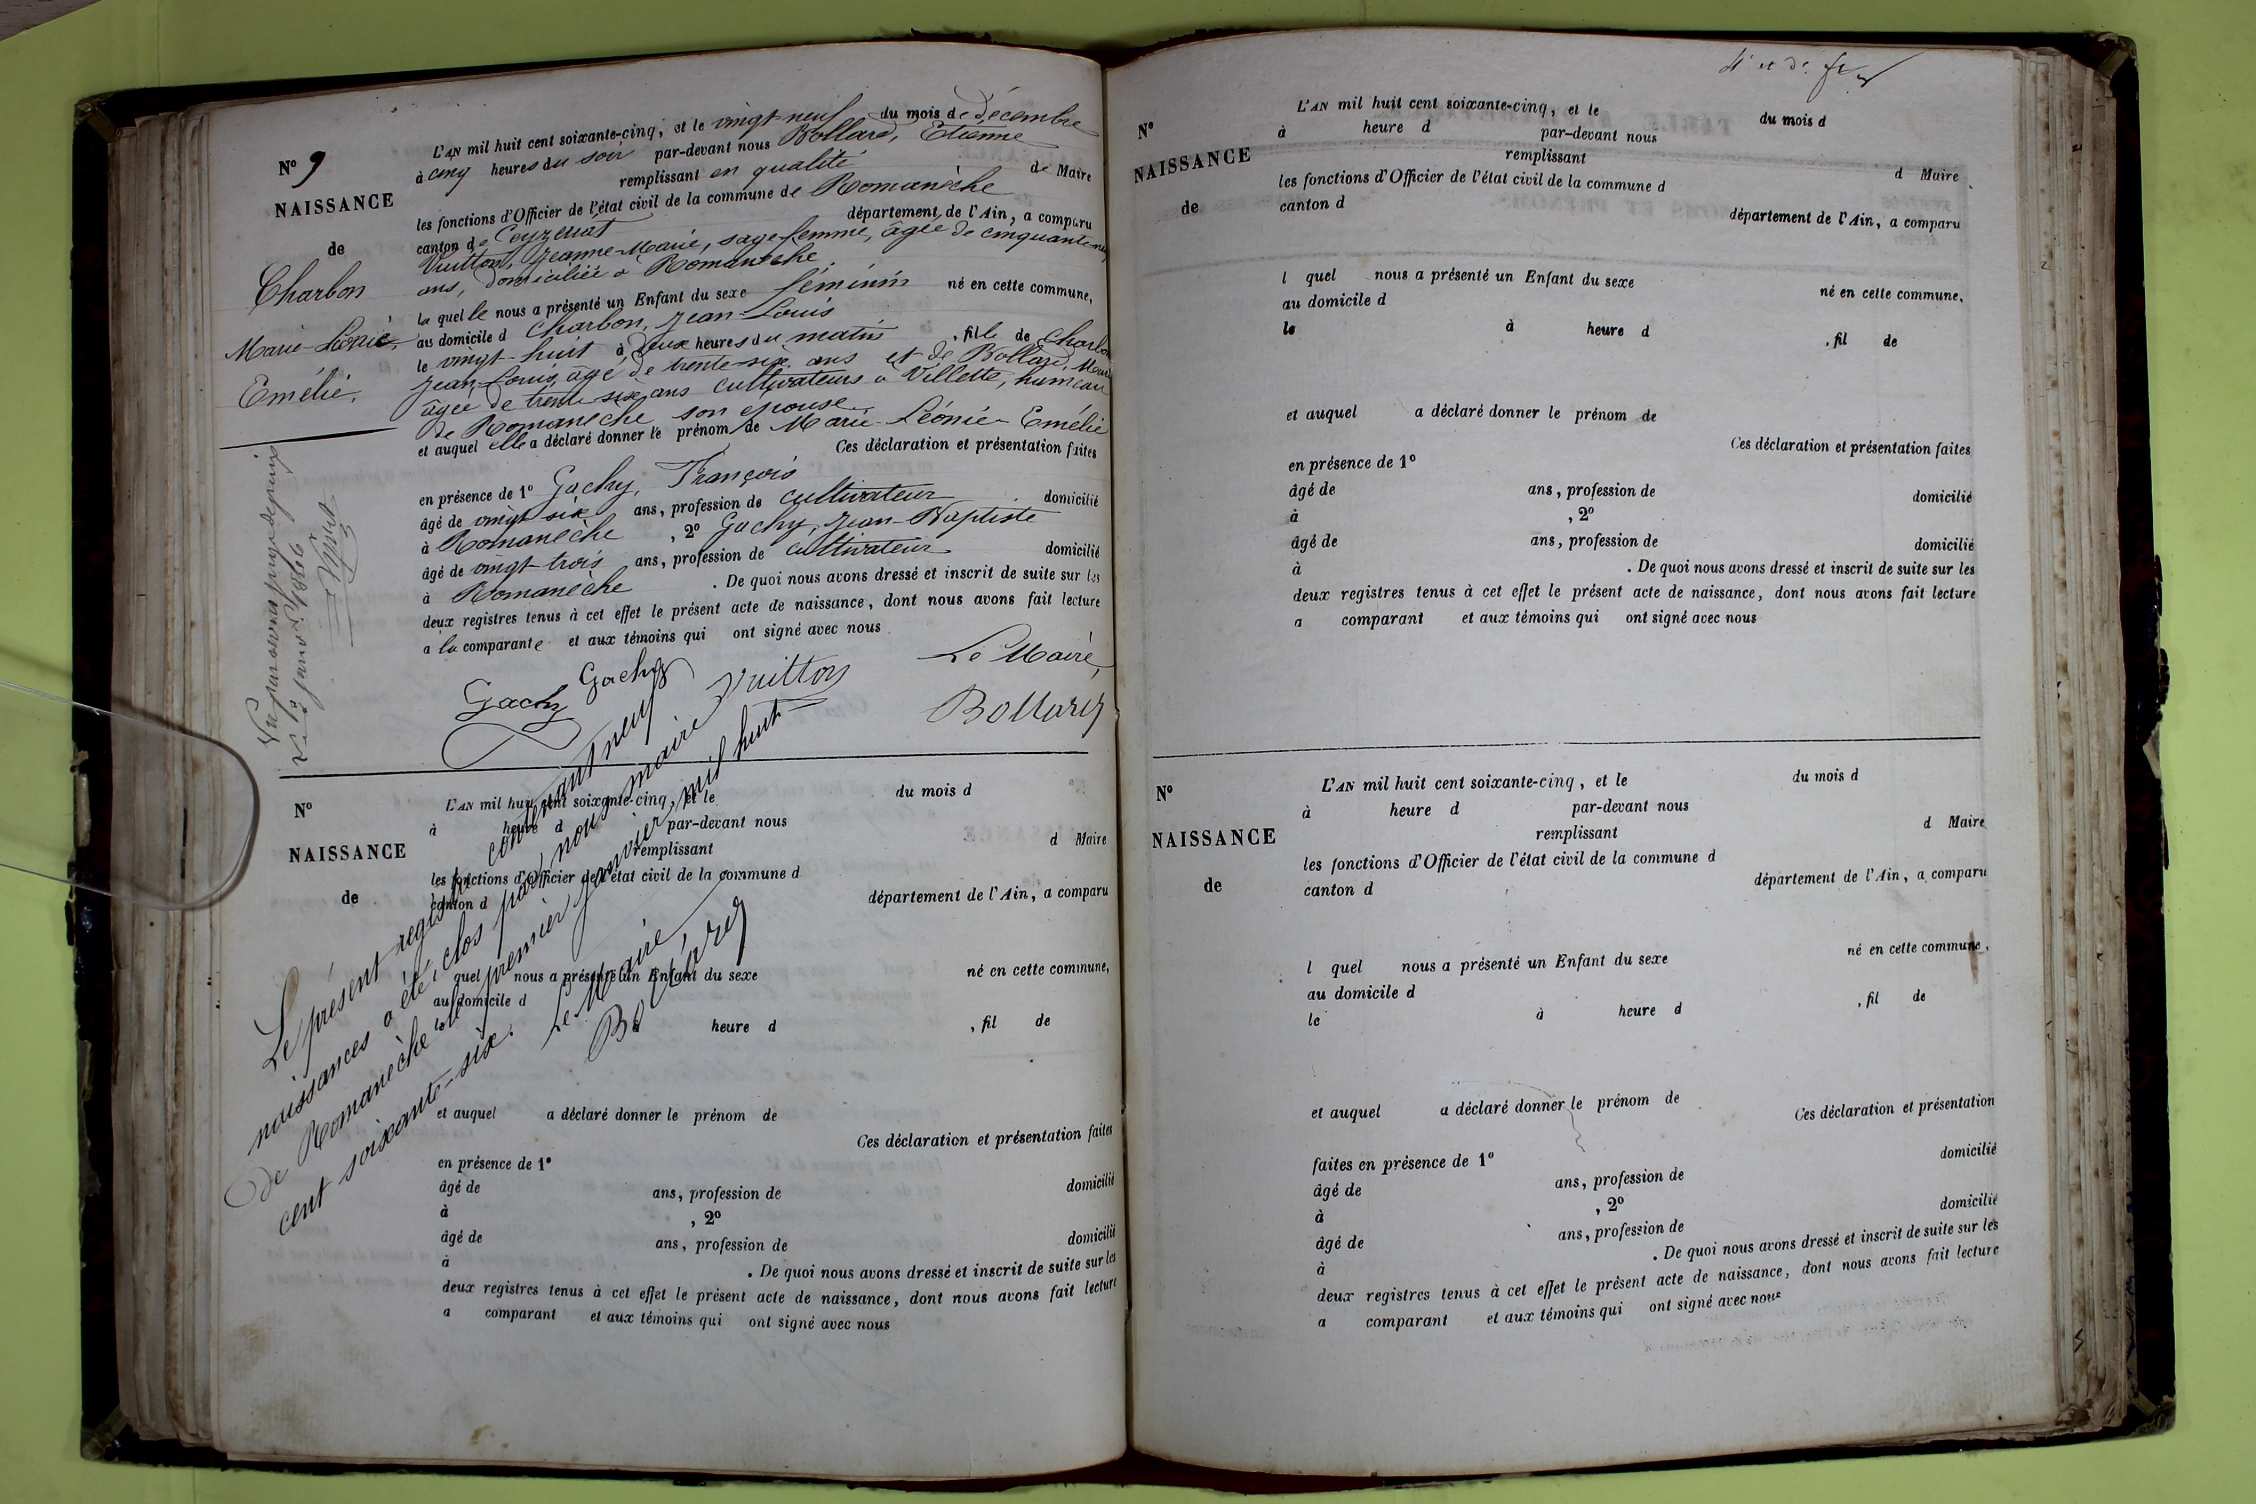 N° 9
NAISSANCE
de
Charbon
Marie-Léonie
Emélie.
L'AN mil huit cent soixante-cinq, et le vingt-neuf du mois de décembre
à cinq heures du soir par-devant nous Bollard, Etienne
remplissant en qualité de Maire
les fonctions d'Officier de l'état civil de la commune de Romanèche
canton de Ceyzeriat département de l'Ain, a comparu
Vuitton, Jeanne-Marie, sage-femme, âgée de cinquante-
ans, domiciliée à Romanèche.
la quelle nous a présenté un Enfant du sexe féminin né en cette commune,
au domicile d Charbon, Jean-Louis
le vingt-huit à deux heures du matin, fille de Charbon
Jean-Louis, âgé de trente-six ans et de Bollard, Marie
âgée de trente six ans cultivateurs à Villette, hameau
de Romanèche son épouse.
et auquel elle a déclaré donner le prénom de Marie-Léonie-Emélie
Ces déclaration et présentation faites
en présence de 1° Gachy, François
âgé de vingt six ans, profession de cultivateur domicilié
à Romanèche, 2° Gachy, Jean-Baptiste
âgé de vingt-trois ans, profession de cultivateur domicilié
à Romanèche. De quoi nous avons dressé et inscrit de suite sur les
deux registres tenus à cet effet le présent acte de naissance, dont nous avons fait lecture
a la comparante et aux témoins qui ont signé avec nous
Gachy Gachy Vuitton Le Maire,
Bollard
Vu par nous juge de paix
le janvier 1866
Le présent registre contenant neuf
naissances a été clos par nous maire
de Romanèche le premier janvier mil huit
cent soixante-six.
Le Maire,
Bollard
N°
NAISSANCE
de
L'AN mil huit cent soixante-cinq, et le du mois d
à heure d par-devant nous
remplissant d Maire
les fonctions d'Officier de l'état civil de la commune d
canton d département de l'Ain, a comparu
quel nous a présenté un Enfant du sexe né en cette commune,
au domicile d
le à heure d , fil de
et auquel a déclaré donner le prénom de
Ces déclaration et présentation faites
en présence de 1°
âgé de ans, profession de domicilié
à , 2°
âgé de ans, profession de domicilié
à . De quoi nous avons dressé et inscrit de suite sur les
deux registres tenus à cet effet le présent acte de naissance, dont nous avons fait lecture
a comparant et aux témoins qui ont signé avec nous
N°
NAISSANCE
de
L'AN mil huit cent soixante-cinq, et le du mois d
à heure d par-devant nous
remplissant d Maire
les fonctions d'Officier de l'état civil de la commune d
canton d département de l'Ain, a comparu
l quel nous a présenté un Enfant du sexe né en cette commune,
au domicile d
le à heure d , fil de
et auquel a déclaré donner le prénom de
Ces déclaration et présentation faites
en présence de 1°
âgé de ans, profession de domicilié
à , 2°
âgé de ans, profession de domicilié
à . De quoi nous avons dressé et inscrit de suite sur les
deux registres tenus à cet effet le présent acte de naissance, dont nous avons fait lecture
a comparant et aux témoins qui ont signé avec nous
N°
NAISSANCE
de
L'AN mil huit cent soixante-cinq, et le du mois d
à heure d par-devant nous
remplissant d Maire
les fonctions d'Officier de l'état civil de la commune d
canton d département de l'Ain, a comparu
l quel nous a présenté un Enfant du sexe né en cette commune,
au domicile d
le à heure d , fil de
et auquel a déclaré donner le prénom de
Ces déclaration et présentation
faites en présence de 1° domicilié
âgé de ans, profession de
à , 2° domicilié
âgé de ans, profession de
à . De quoi nous avons dressé et inscrit de suite sur les
deux registres tenus à cet effet le présent acte de naissance, dont nous avons fait lecture
a comparant et aux témoins qui ont signé avec nous